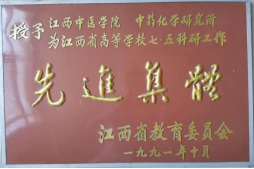 授予江西中医学院 中药化学研究所
为江西省高等学校七·五科研工作
先進集體
江西省教育委员会
一九九一年十月